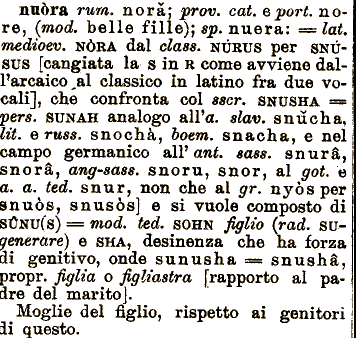 nuòra rum. noră; prov. cat. e port. no-
re, (mod. belle fille); sp. nuera: = lat.
medioev. NÒRA dal class. NÚRUS per SNÚ-
SUS [cangiata la S in R come avviene dal-
l'arcaico al classico in latino fra due vo-
cali], che confronta col sscr. SNUSHA =
pers. SUNAH analogo all'a. slav. snŭcha,
lit. e russ. snochà, boem. snacha, e nel
campo germanico all' ant. sass. snurâ,
snorâ, ang-sass. snoru, snor, al got. e
a. a. ted. snur, non che al gr. nyòs per
snuòs, snusòs] e si vuole composto di
SÛNU(S) = mod. ted. SOHN figlio (rad. SU-
generare) e SHA, desinenza che ha forza
di genitivo, onde sunusha = snushâ,
propr. figlia o figliastra [rapporto al pa-
dre del marito].
Moglie del figlio, rispetto ai genitori
di questo.